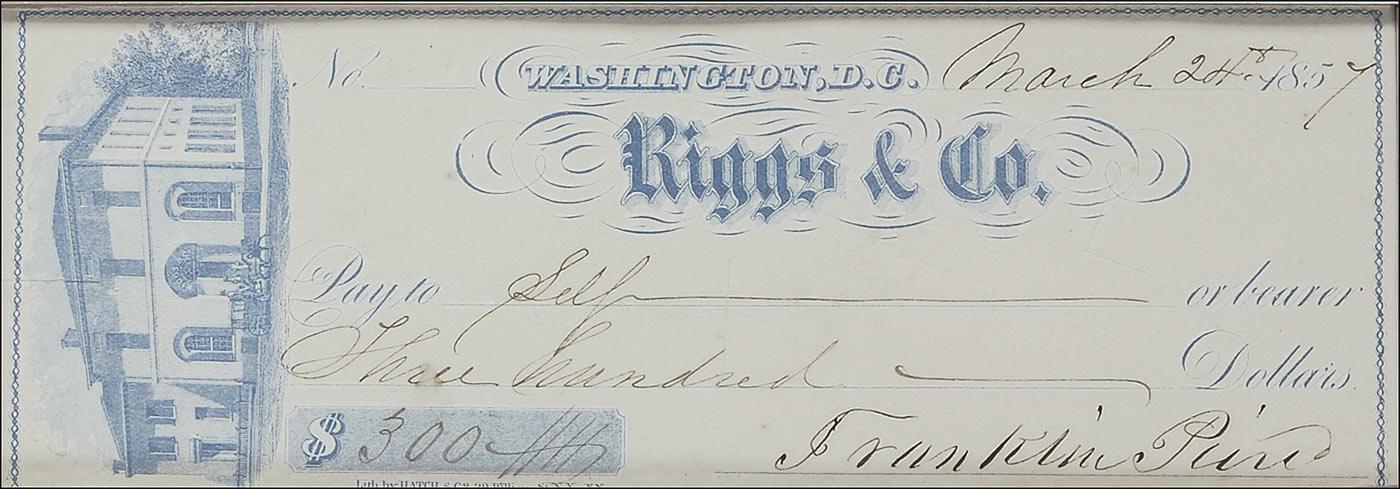 No. WASHINGTON, D.C. March 24th 1857
Riggs & Co.
Pay to Self or bearer
Three hundred Dollars
$ 300
Franklin Pierce
Lith by HATCH & Co.